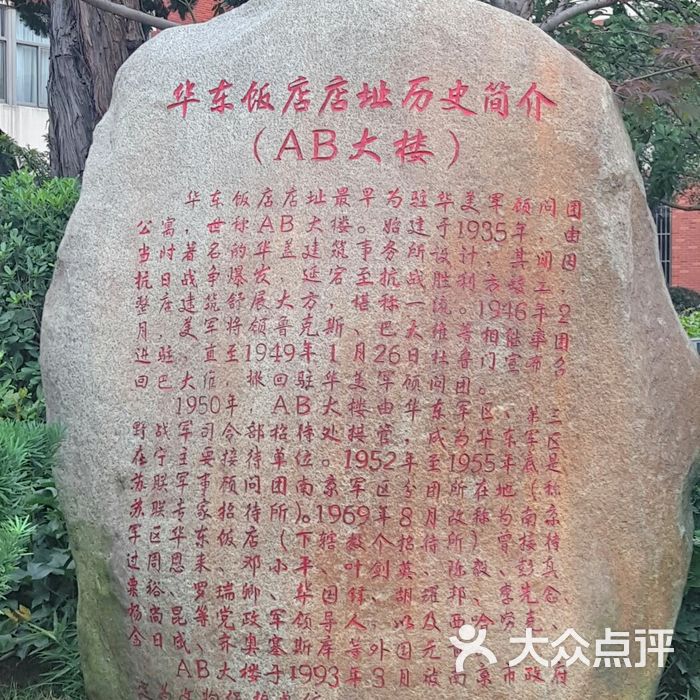 华东饭店店址历史简介
(AB大楼)
华东饭店店址最早为驻华美军顾问团
公寓，世称AB大楼。始建于1935年，由
当时著名的华盖建筑事务所设计，其间因
抗日战争爆发，延宕至抗战胜利方竣工，
整座建筑舒展大方，堪称一流。1946年2
月，美军将领鲁克斯、巴大维等相继率团
进驻，直至1949年1月26日杜鲁门宣布召
回巴大维，撤回驻华美军顾问团。
1950年，AB大楼由华东军区、第三
野战军司令部招待处接管，成为华东军区
在宁主要接待单位。1952年至1955年底是
苏联军事顾问团南京军区分团所在地（称
苏联专家招待所）。1969年8月改称为南京
军区华东饭店（下辖数个招待所）曾接待
过周恩来、邓小平、叶剑英、陈毅、彭真、
粟裕、罗瑞卿、华国锋、胡耀邦、李先念、
杨尚昆等党政军领导人，以及西哈努克、
金日成、齐奥塞斯库等外国元首。
AB大楼于1993年8月被南京市政府
定为文物保护单位
大众点评